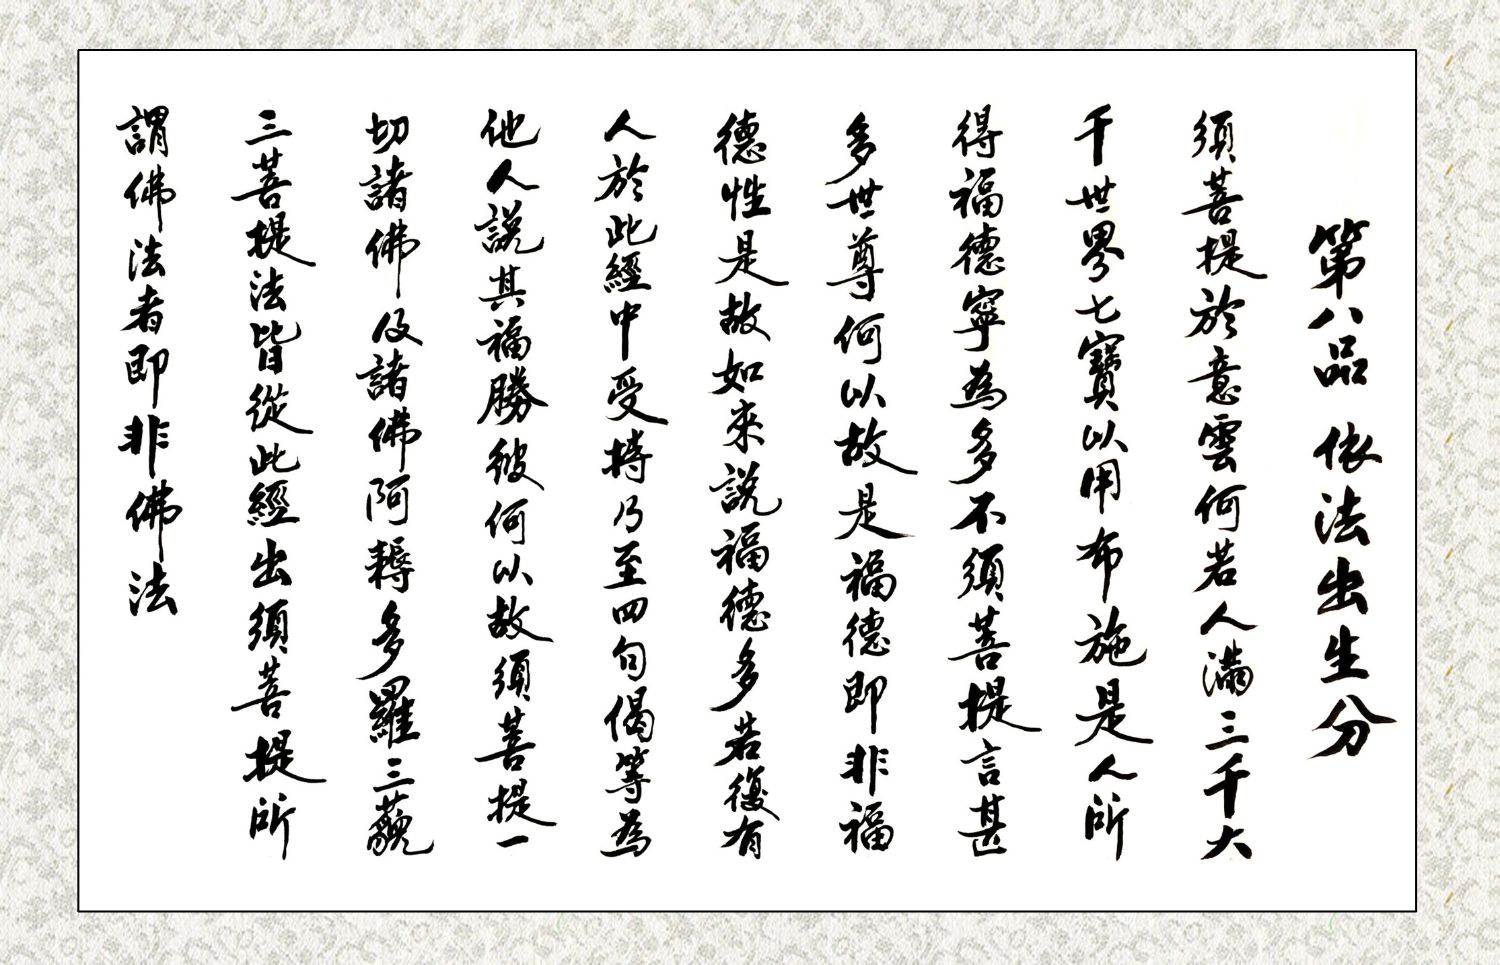 第八品 依法出生分
須菩提於意雲何若人滿三千大
千世界七寶以用布施是人所
得福德寧為多不須菩提言甚
多世尊何以故是福德即非福
德性是故如來說福德多若復有
人於此經中受持乃至四句偈等為
他人說其福勝彼何以故須菩提一
切諸佛及諸佛阿耨多羅三藐
三菩提法皆從此經出須菩提所
謂佛法者即非佛法